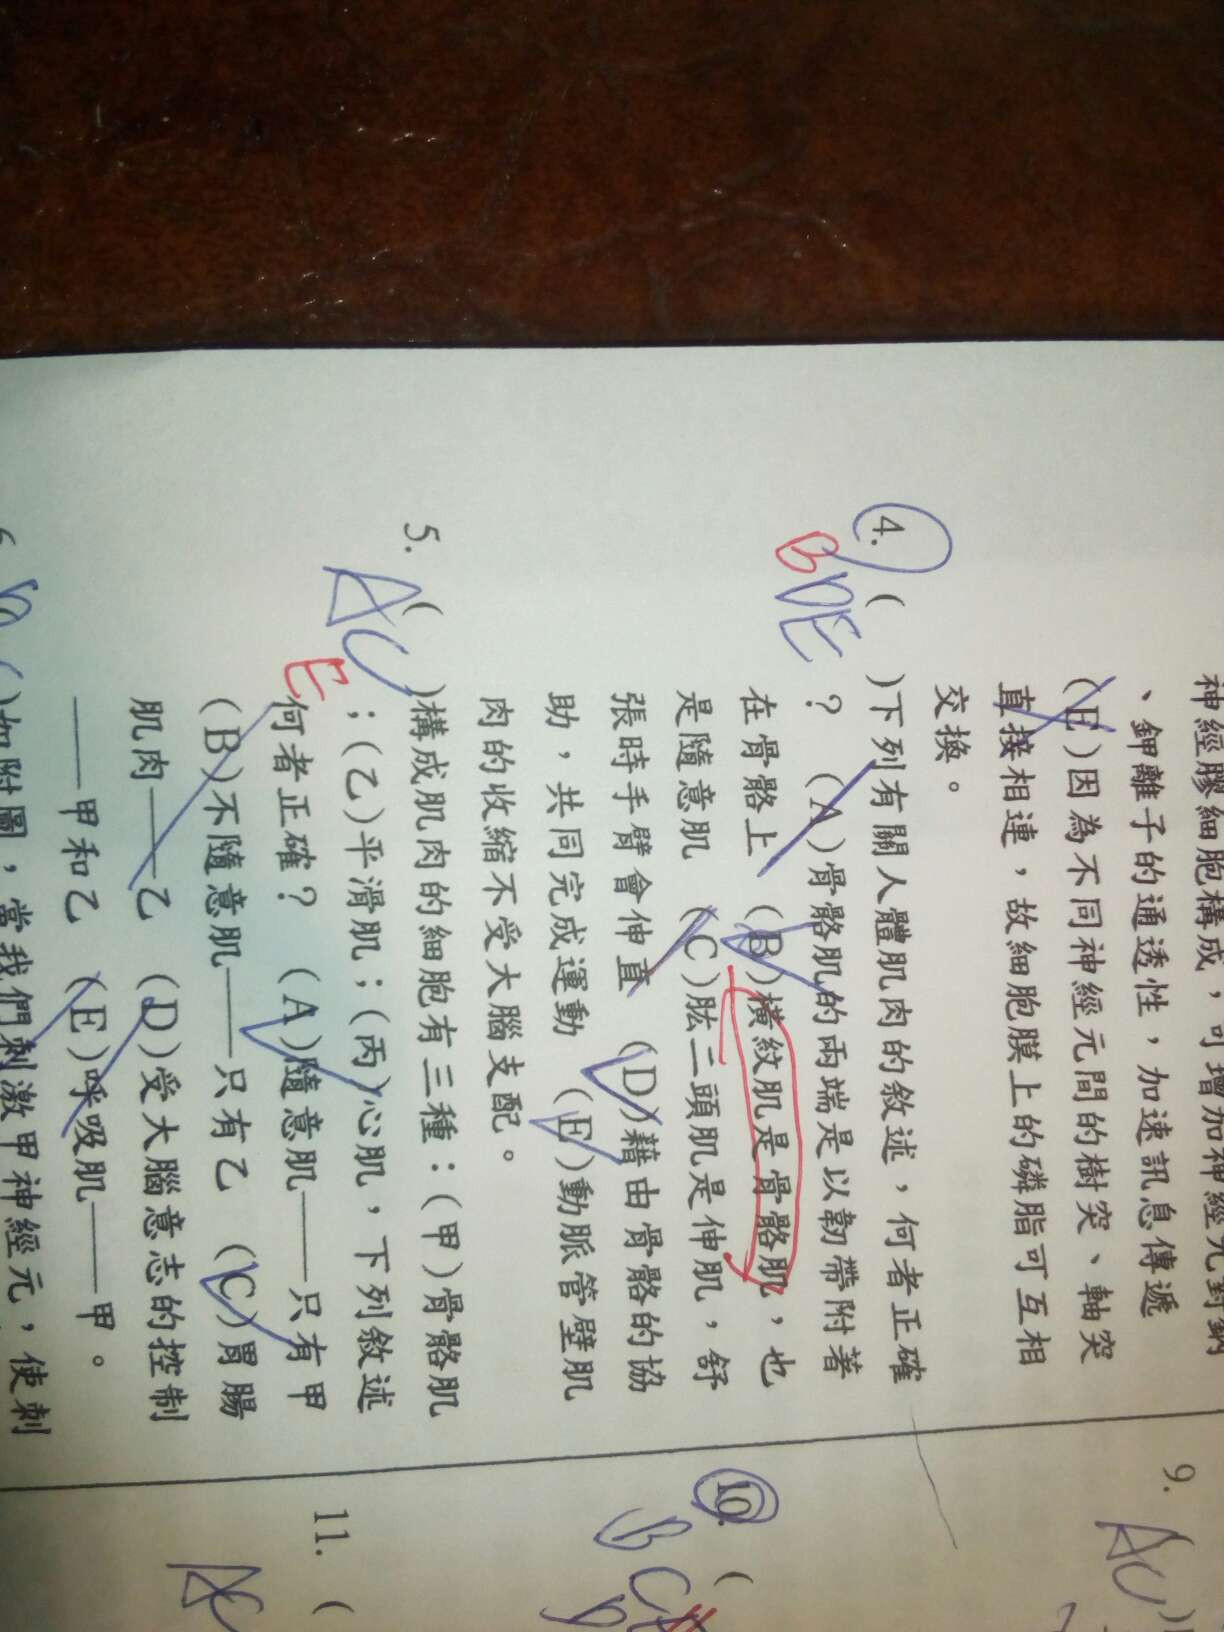 神經膠細胞構成，可增加神經元對鈉
、鉀離子的通透性，加速訊息傳遞
(E)因為不同神經元間的樹突、軸突
直接相連，故細胞膜上的磷脂可互相
交換。
4. ( )下列有關人體肌肉的敘述，何者正確
BDE
？ (A)骨骼肌的兩端是以韌帶附著
在骨骼上 (B)橫紋肌是骨骼肌，也
是隨意肌 (C)肱二頭肌是伸肌，舒
張時手臂會伸直 (D)藉由骨骼的協
助，共同完成運動 (E)動脈管壁肌
肉的收縮不受大腦支配。
5. ( )構成肌肉的細胞有三種：(甲)骨骼肌
ACE
；(乙)平滑肌；(丙)心肌，下列敘述
何者正確？ (A)隨意肌——只有甲
(B)不隨意肌——只有乙 (C)胃腸
肌肉——乙 (D)受大腦意志的控制
——甲和乙 (E)呼吸肌——甲。
6. ( )如附圖，當我們刺激甲神經元，使刺
9. (
AC
10. (
BC
11. (
AC